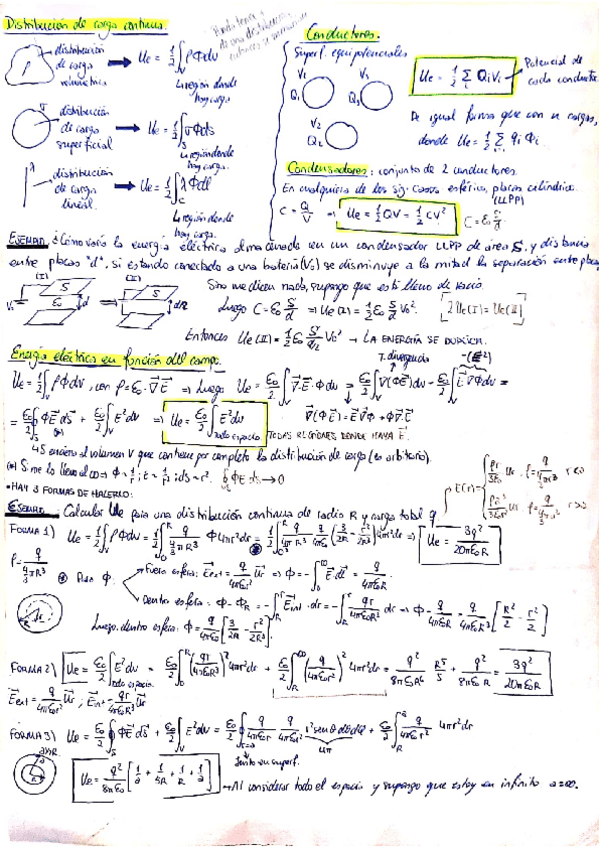 Distribución de carga continua.
distribución de carga volumétrica → Ue = 1/2 ∫_V ρΦdv
↳ región donde hay carga
distribución de carga superficial → Ue = 1/2 ∫_S σΦds
↳ región donde hay carga.
distribución de carga lineal. → Ue = 1/2 ∫_C λΦdl
↳ región donde hay carga.
Conductores.
Superf. equipotenciales
V₁ Q₁ V₃ Q₃ V₂ Q₂
Ue = 1/2 Σ QᵢVᵢ
Potencial de cada conductor
De igual forma que con n cargas,
donde Ue = 1/2 Σ qᵢ Φᵢ.
Condensadores: conjunto de 2 conductores.
En cualquiera de los sig. casos esférico, placas cilíndrico.
(LLPP)
C = Q/V ⇒ Ue = 1/2 QV = 1/2 CV² C = ε₀ S/d.
EJEMPLO. ¿Cómo varía la energía eléctrica almacenada en un condensador LLPP de área S, y distancia
entre placas "d", si estando conectado a una batería (V₀) se disminuye a la mitad la separación entre placas
(I) S ε₀ d V₀ ⇒ (II) S d/2
Si no me dicen nada, supongo que está lleno de vacío
Luego C = ε₀ S/d ⇒ Ue(I) = 1/2 ε₀ S/d V₀². [2Ue(I) = Ue(II)]
Entonces Ue(II) = 1/2 ε₀ S/(d/2) V₀² → LA ENERGÍA SE DUPLICA.
Energía eléctrica en función del campo.
T. divergencia
Ue = 1/2 ∫_V ρΦdv, con ρ = ε₀·∇E ⇒ Luego Ue = ε₀/2 ∫_V ∇·E·Φdv = ε₀/2 ∫_V ∇(ΦE)dv - ε₀/2 ∫_V E∇Φdv =
= ε₀/2 ∮_S ΦE ds + ε₀/2 ∫_V E²dv ⇒ Ue = ε₀/2 ∫ E²dv
todo espacio
TODAS REGIONES DONDE HAYA E.
∇(ΦE) = E∇Φ + Φ∇·E
↳ S encierra el volumen V que contiene por completo la distribución de carga (es arbitrario).
(*) Si me lo llevo al ∞ ⇒ Φ ~ 1/r; E ~ 1/r²; ds ~ r². ∮ΦE ds → 0
• HAY 3 FORMAS DE HACERLO:
EJEMPLO: Calcular Ue para una distribución continua de radio R y carga total q
FORMA 1) Ue = 1/2 ∫_V ρΦdv
Ue = 3q²/(20πε₀R)
ρ = q/(4/3 πR³)
Para Φ:
Fuera esfera: Eext = q/(4πε₀r²) Ur ⇒ Φ = -∫ E dr = q/(4πε₀r).
Dentro esfera: Φ - Φ_R = -∫_R^r Eint · dr = -∫_R^r qr/(4πε₀R³) dr ⇒ Φ - q/(4πε₀R) = q/(4πε₀R³) [R²/2 - r²/2]
Luego dentro esfera: Φ = q/(4πε₀) [3/(2R) - r²/(2R³)]
FORMA 2) Ue = ε₀/2 ∫ E²dv = ε₀/2 ∫_0^R (qr/(4πε₀R³))² 4πr²dr + ε₀/2 ∫_R^∞ (q/(4πε₀r²))² 4πr²dr = q²/(8πε₀R⁶) R⁵/5 + q²/(8πε₀R) = 3q²/(20πε₀R)
todo espacio
Eext = q/(4πε₀r²) Ur; Eint = qr/(4πε₀R³) Ur
FORMA 3) Ue = ε₀/2 ∮_S ΦE ds + ε₀/2 ∫_V E²dv
junto en superf.
a>R.
Ue = q²/(8πε₀) [1/a + 1/(5R) + 1/R - 1/a]
→ Al considerar todo el espacio y supongo que estoy en infinito a=∞.